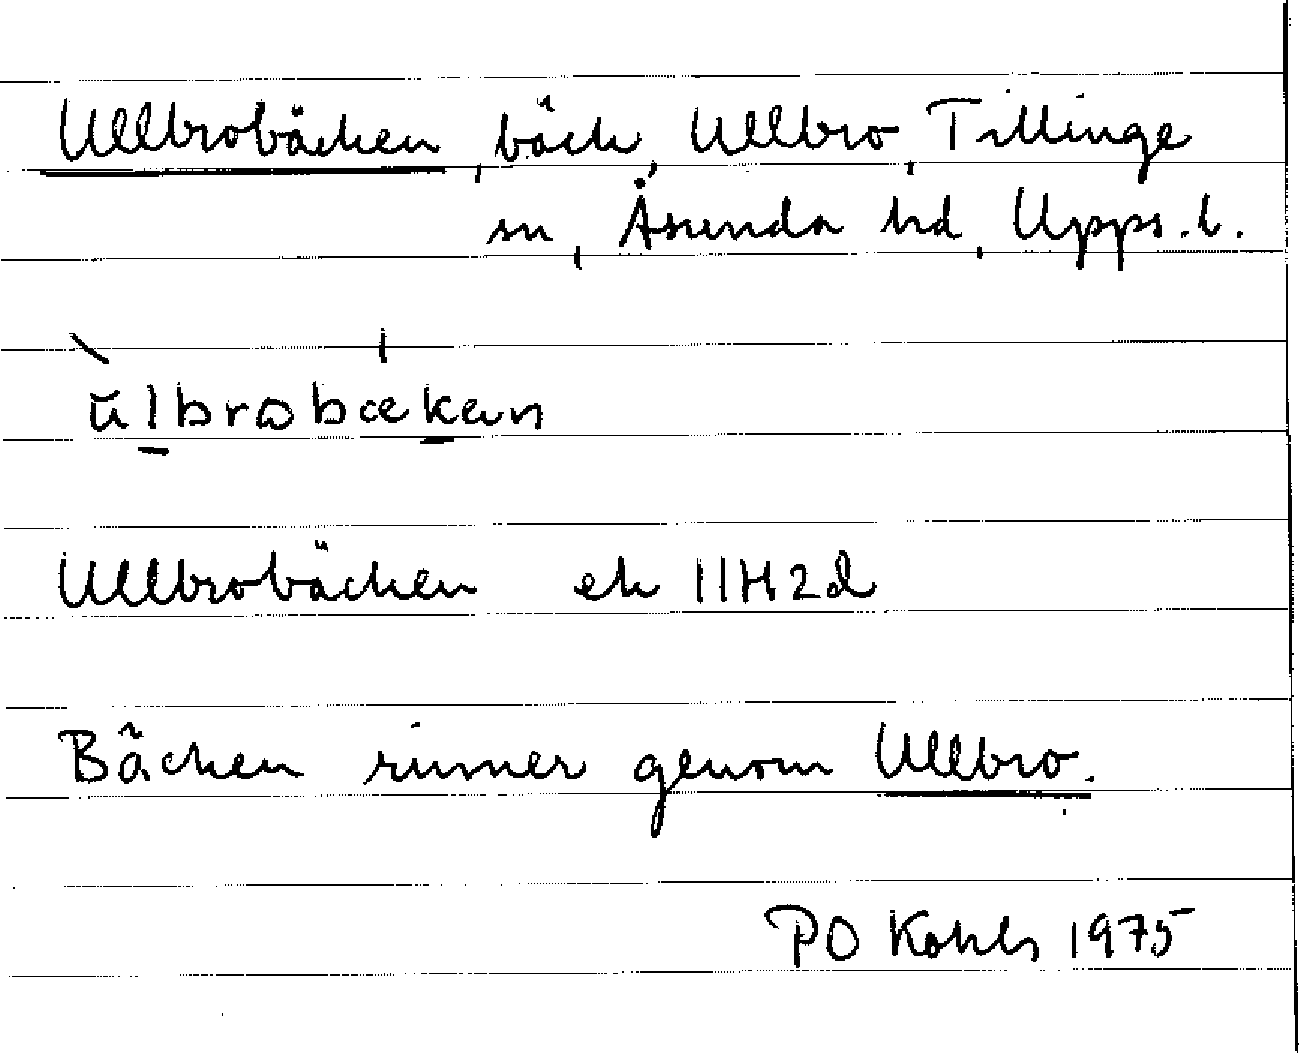 Ullbrobäcken, bäck, Ullbro, Tillinge
sn, Åsunda hd, Upps. l.
ŭlbrobækan
Ullbrobäcken ek 11H2d
Bäcken rinner genom Ullbro.
PO Kohls 1975